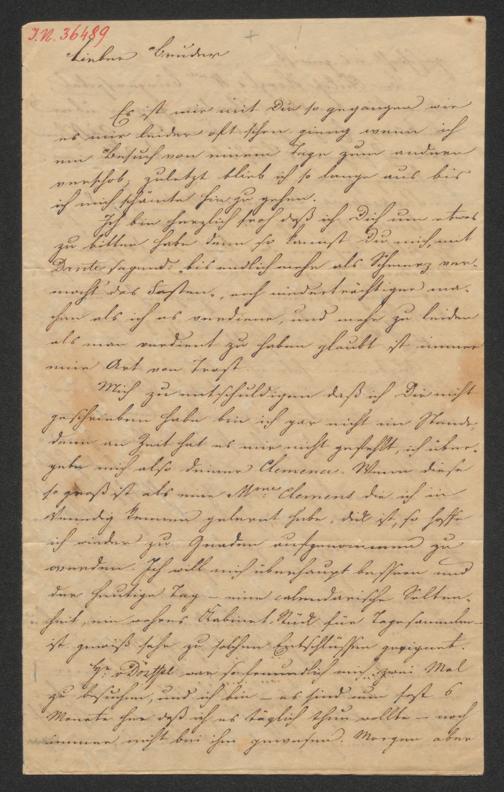 I.N. 36489
Lieber Bruder
Es ist mir mit Dir so gegangen wie
es mir leider oft schon ging wenn ich
ein Besuch von einem Tage zum andern
verschob, zuletzt blieb ich so lange aus bis
ich mich schämte hin zu gehen.
Ich bin herzlich froh daß ich Dich um etwas
zu bitten habe denn so kannst Du mich, mit
Dante sagend, bis endlich mehr als Schmerz ver-
mocht das Fasten, noch niederträchtiger ma-
chen als ich es verdiene, und mehr zu leiden
als man verdient zu haben glaubt ist immer
eine Art von Trost
Mich zu entschuldigen daß ich Dir nicht
geschrieben habe bin ich gar nicht im Stande,
denn an Zeit hat es mir nicht gefehlt, ich über-
gebe mich also deiner Clemence. Wenn diese
so groß ist als eine Mme Clement die ich in
Venedig kennen gelernt habe, dick ist, so hoffe
ich wieder zu Gnaden aufgenommen zu
werden. Ich will mich überhaupt bessern und
der heutige Tag – eine calendarische Selten-
heit, ein wahres Kabinet-Stück für Tagesammler –
ist gewiß sehr zu solchen Entschlüssen geeignet.
Hr. v. war so freundlich mich zwei Mal
zu besuchen, und ich bin – es sind nun fast 6
Monate her daß ich es täglich thun wollte – noch
immer nicht bei ihm gewesen. Morgen aber